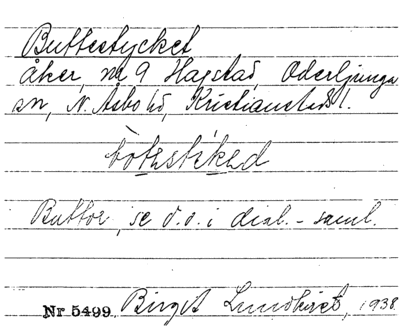 Buttestycket
åker, nr 9 Hagstad, Oderljunga
sn, N. Åsbo hd, Kristianstads l.
bòtəstìkəd
Buttor, se d. o. i dial.-saml.
Nr 5499. Birgit Lundkvist, 1938.